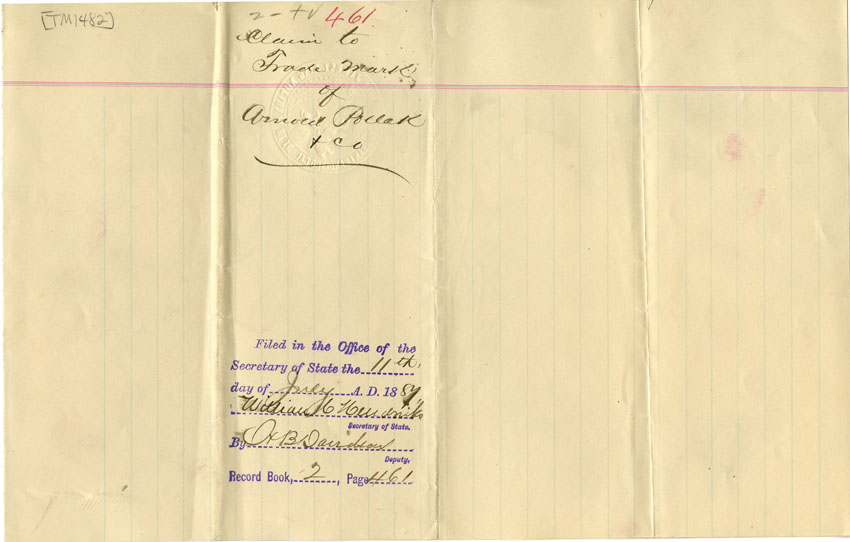 [TM1482]
2 - 461
Claim to
Trade Mark
of
Arnold Pollak
+ Co
Filed in the Office of the
Secretary of State the 11th
day of July A. D. 1889
William H Hendricks
Secretary of State.
By A B Davidson
Deputy.
Record Book, 2, Page 461